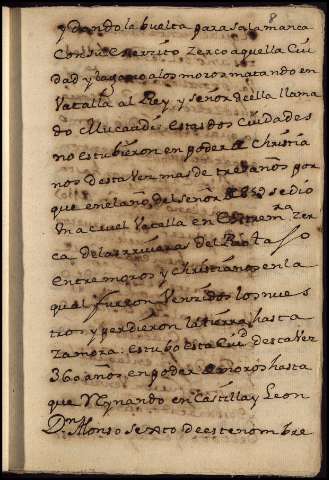 8
y dando la buelta para salamanca
Con su Exerzito Zerco aquella Ciu
dad y la gano a los moros matando en
Vatalla al Rey, y señor de ella llama
do Mucadir Estas dos Ciudades
no estubieron en poder de Christia
nos desta Vez mas de tres años por
que en el año del señor de se dio
Una cruel Vatalla en Estremra Zer
ca de las rriveras del Rio tajo
Entre moros y christianos en la
qual fueron Venzidos los nues
tros y perdieron la tierra hasta
Zamora: estubo esta Ciud desta Vez
360 años en poder de moros hasta
que Reynando en Castilla y Leon
Dn Alonso sexto de este nombre